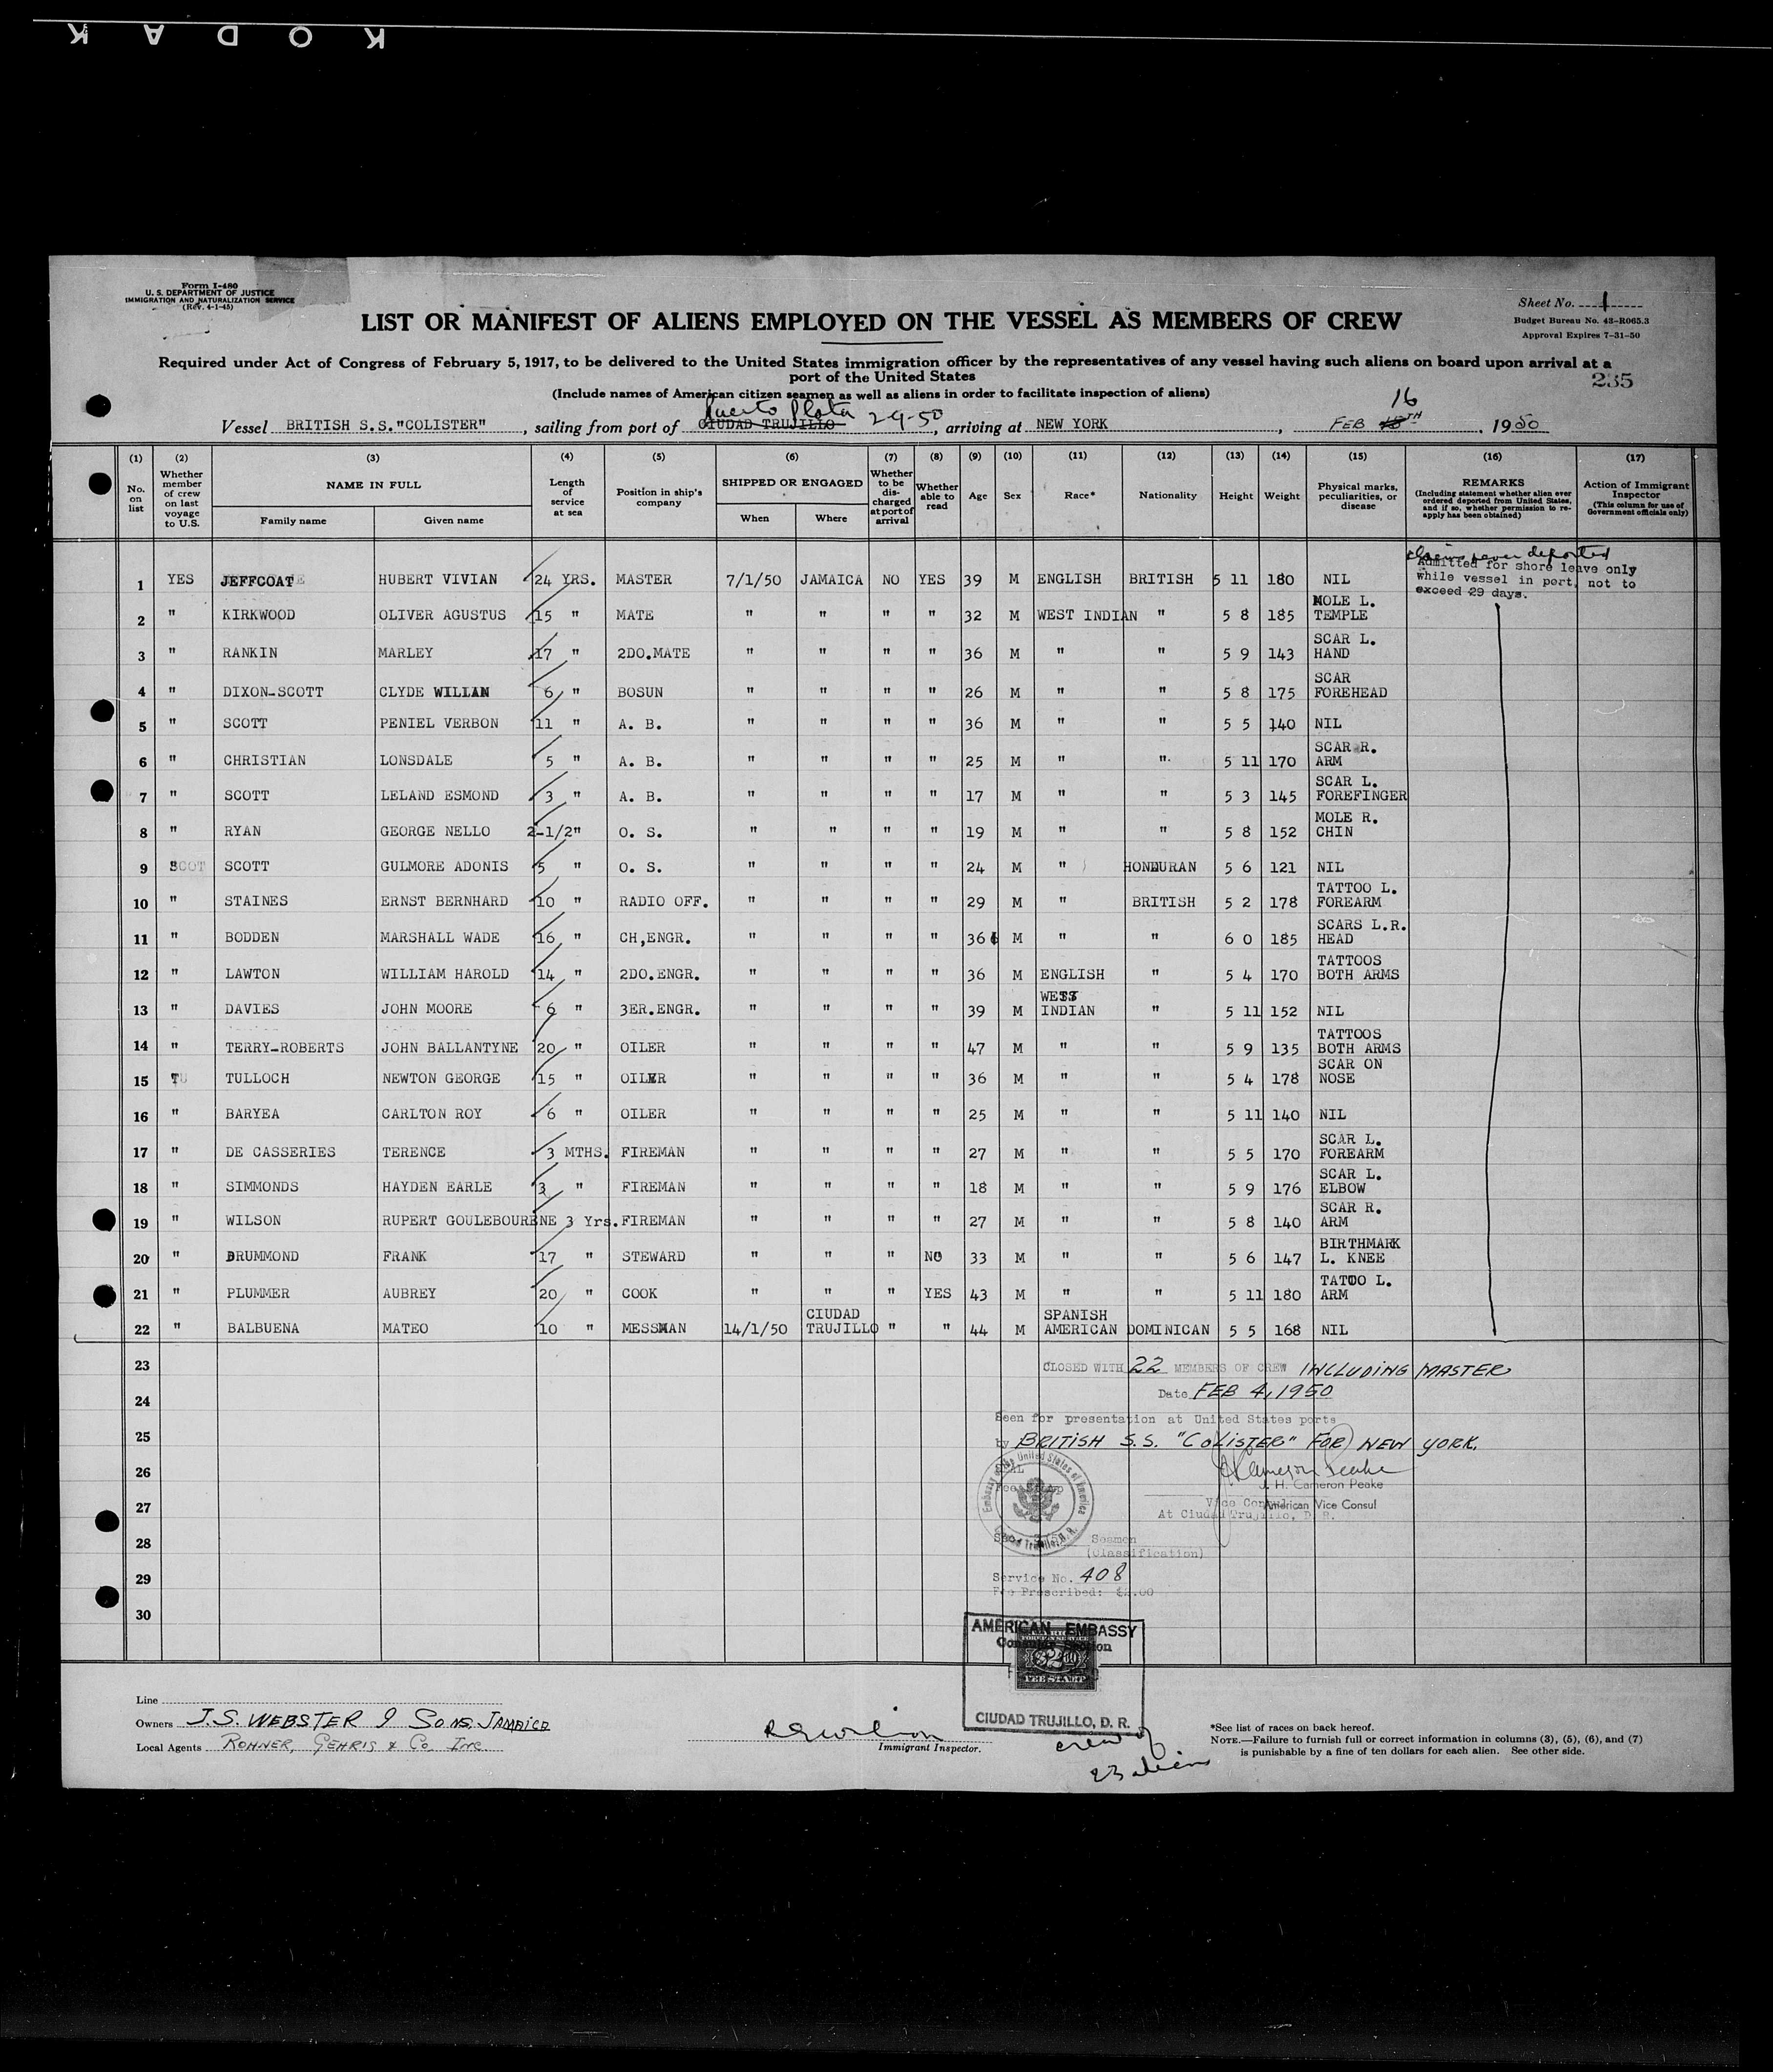 KODAK
Form I-480
U. S. DEPARTMENT OF JUSTICE
IMMIGRATION AND NATURALIZATION SERVICE
(Rev. 4-1-45)
Sheet No. 1
Budget Bureau No. 43-R065.3
Approval Expires 7-31-50
LIST OR MANIFEST OF ALIENS EMPLOYED ON THE VESSEL AS MEMBERS OF CREW
Required under Act of Congress of February 5, 1917, to be delivered to the United States immigration officer by the representatives of any vessel having such aliens on board upon arrival at a
port of the United States
235
(Include names of American citizen seamen as well as aliens in order to facilitate inspection of aliens)
Puerto Plata 2-9-50 16
Vessel BRITISH S.S."COLISTER", sailing from port of CIUDAD TRUJILLO, arriving at NEW YORK, FEB 15TH, 1950
(1) No. on list
(2) Whether member of crew on last voyage to U.S.
(3) NAME IN FULL Family name Given name
(4) Length of service at sea
(5) Position in ship's company
(6) SHIPPED OR ENGAGED When Where
(7) Whether to be discharged at port of arrival
(8) Whether able to read
(9) Age
(10) Sex
(11) Race*
(12) Nationality
(13) Height
(14) Weight
(15) Physical marks, peculiarities, or disease
(16) REMARKS (Including statement whether alien ever ordered deported from United States, and if so, whether permission to re-apply has been obtained)
(17) Action of Immigrant Inspector (This column for use of Government officials only)
never deported
Admitted for shore leave only
while vessel in port, not to
exceed 29 days.
1 YES JEFFCOAT HUBERT VIVIAN 24 YRS. MASTER 7/1/50 JAMAICA NO YES 39 M ENGLISH BRITISH 5 11 180 NIL
2 " KIRKWOOD OLIVER AGUSTUS 15 " MATE " " " " 32 M WEST INDIAN " 5 8 185 MOLE L. TEMPLE
3 " RANKIN MARLEY 17 " 2DO.MATE " " " " 36 M " " 5 9 143 SCAR L. HAND
4 " DIXON-SCOTT CLYDE WILLIAN 6 " BOSUN " " " " 26 M " " 5 8 175 SCAR FOREHEAD
5 " SCOTT PENIEL VERBON 11 " A. B. " " " " 36 M " " 5 5 140 NIL
6 " CHRISTIAN LONSDALE 5 " A. B. " " " " 25 M " " 5 11 170 SCAR R. ARM
7 " SCOTT LELAND ESMOND 3 " A. B. " " " " 17 M " " 5 3 145 SCAR L. FOREFINGER
8 " RYAN GEORGE NELLO 2-1/2" O. S. " " " " 19 M " " 5 8 152 MOLE R. CHIN
9 " SCOTT GULMORE ADONIS 5 " O. S. " " " " 24 M " HONDURAN 5 6 121 NIL
10 " STAINES ERNST BERNHARD 10 " RADIO OFF. " " " " 29 M " BRITISH 5 2 178 TATTOO L. FOREARM
11 " BODDEN MARSHALL WADE 16 " CH,ENGR. " " " " 36 M " " 6 0 185 SCARS L.R. HEAD
12 " LAWTON WILLIAM HAROLD 14 " 2DO.ENGR. " " " " 36 M ENGLISH " 5 4 170 TATTOOS BOTH ARMS
13 " DAVIES JOHN MOORE 6 " 3ER.ENGR. " " " " 39 M WEST INDIAN " 5 11 152 NIL
14 " TERRY-ROBERTS JOHN BALLANTYNE 20 " OILER " " " " 47 M " " 5 9 135 TATTOOS BOTH ARMS
15 " TULLOCH NEWTON GEORGE 15 " OILER " " " " 36 M " " 5 4 178 SCAR ON NOSE
16 " BARYEA CARLTON ROY 6 " OILER " " " " 25 M " " 5 11 140 NIL
17 " DE CASSERIES TERENCE 3 MTHS. FIREMAN " " " " 27 M " " 5 5 170 SCAR L. FOREARM
18 " SIMMONDS HAYDEN EARLE 3 " FIREMAN " " " " 18 M " " 5 9 176 SCAR L. ELBOW
19 " WILSON RUPERT GOULEBOURENE 3 Yrs. FIREMAN " " " " 27 M " " 5 8 140 SCAR R. ARM
20 " DRUMMOND FRANK 17 " STEWARD " " " NO 33 M " " 5 6 147 BIRTHMARK L. KNEE
21 " PLUMMER AUBREY 20 " COOK " " " YES 43 M " " 5 11 180 TATOO L. ARM
22 " BALBUENA MATEO 10 " MESSMAN 14/1/50 CIUDAD TRUJILLO " " 44 M SPANISH AMERICAN DOMINICAN 5 5 168 NIL
23
24
25
26
27
28
29
30
CLOSED WITH 22 MEMBERS OF CREW INCLUDING MASTER
Date FEB 4, 1950
Seen for presentation at United States ports
by BRITISH S.S. "COLISTER" FOR NEW YORK.
J. H. Cameron Peake
American Vice Consul
Vice Consul
At Ciudad Trujillo, D. R.
Embassy of the United States of America
Seamen
(Classification)
Service No. 408
Fee Prescribed: $2.00
AMERICAN EMBASSY
Consular Section
$2.00
FEE STAMP
CIUDAD TRUJILLO, D. R.
Line
Owners J.S. WEBSTER & SONS, JAMAICA
Local Agents ROHNER, GEHRIG & Co. Inc.
Immigrant Inspector.
crew of
23 aliens
*See list of races on back hereof.
NOTE.—Failure to furnish full or correct information in columns (3), (5), (6), and (7)
is punishable by a fine of ten dollars for each alien. See other side.